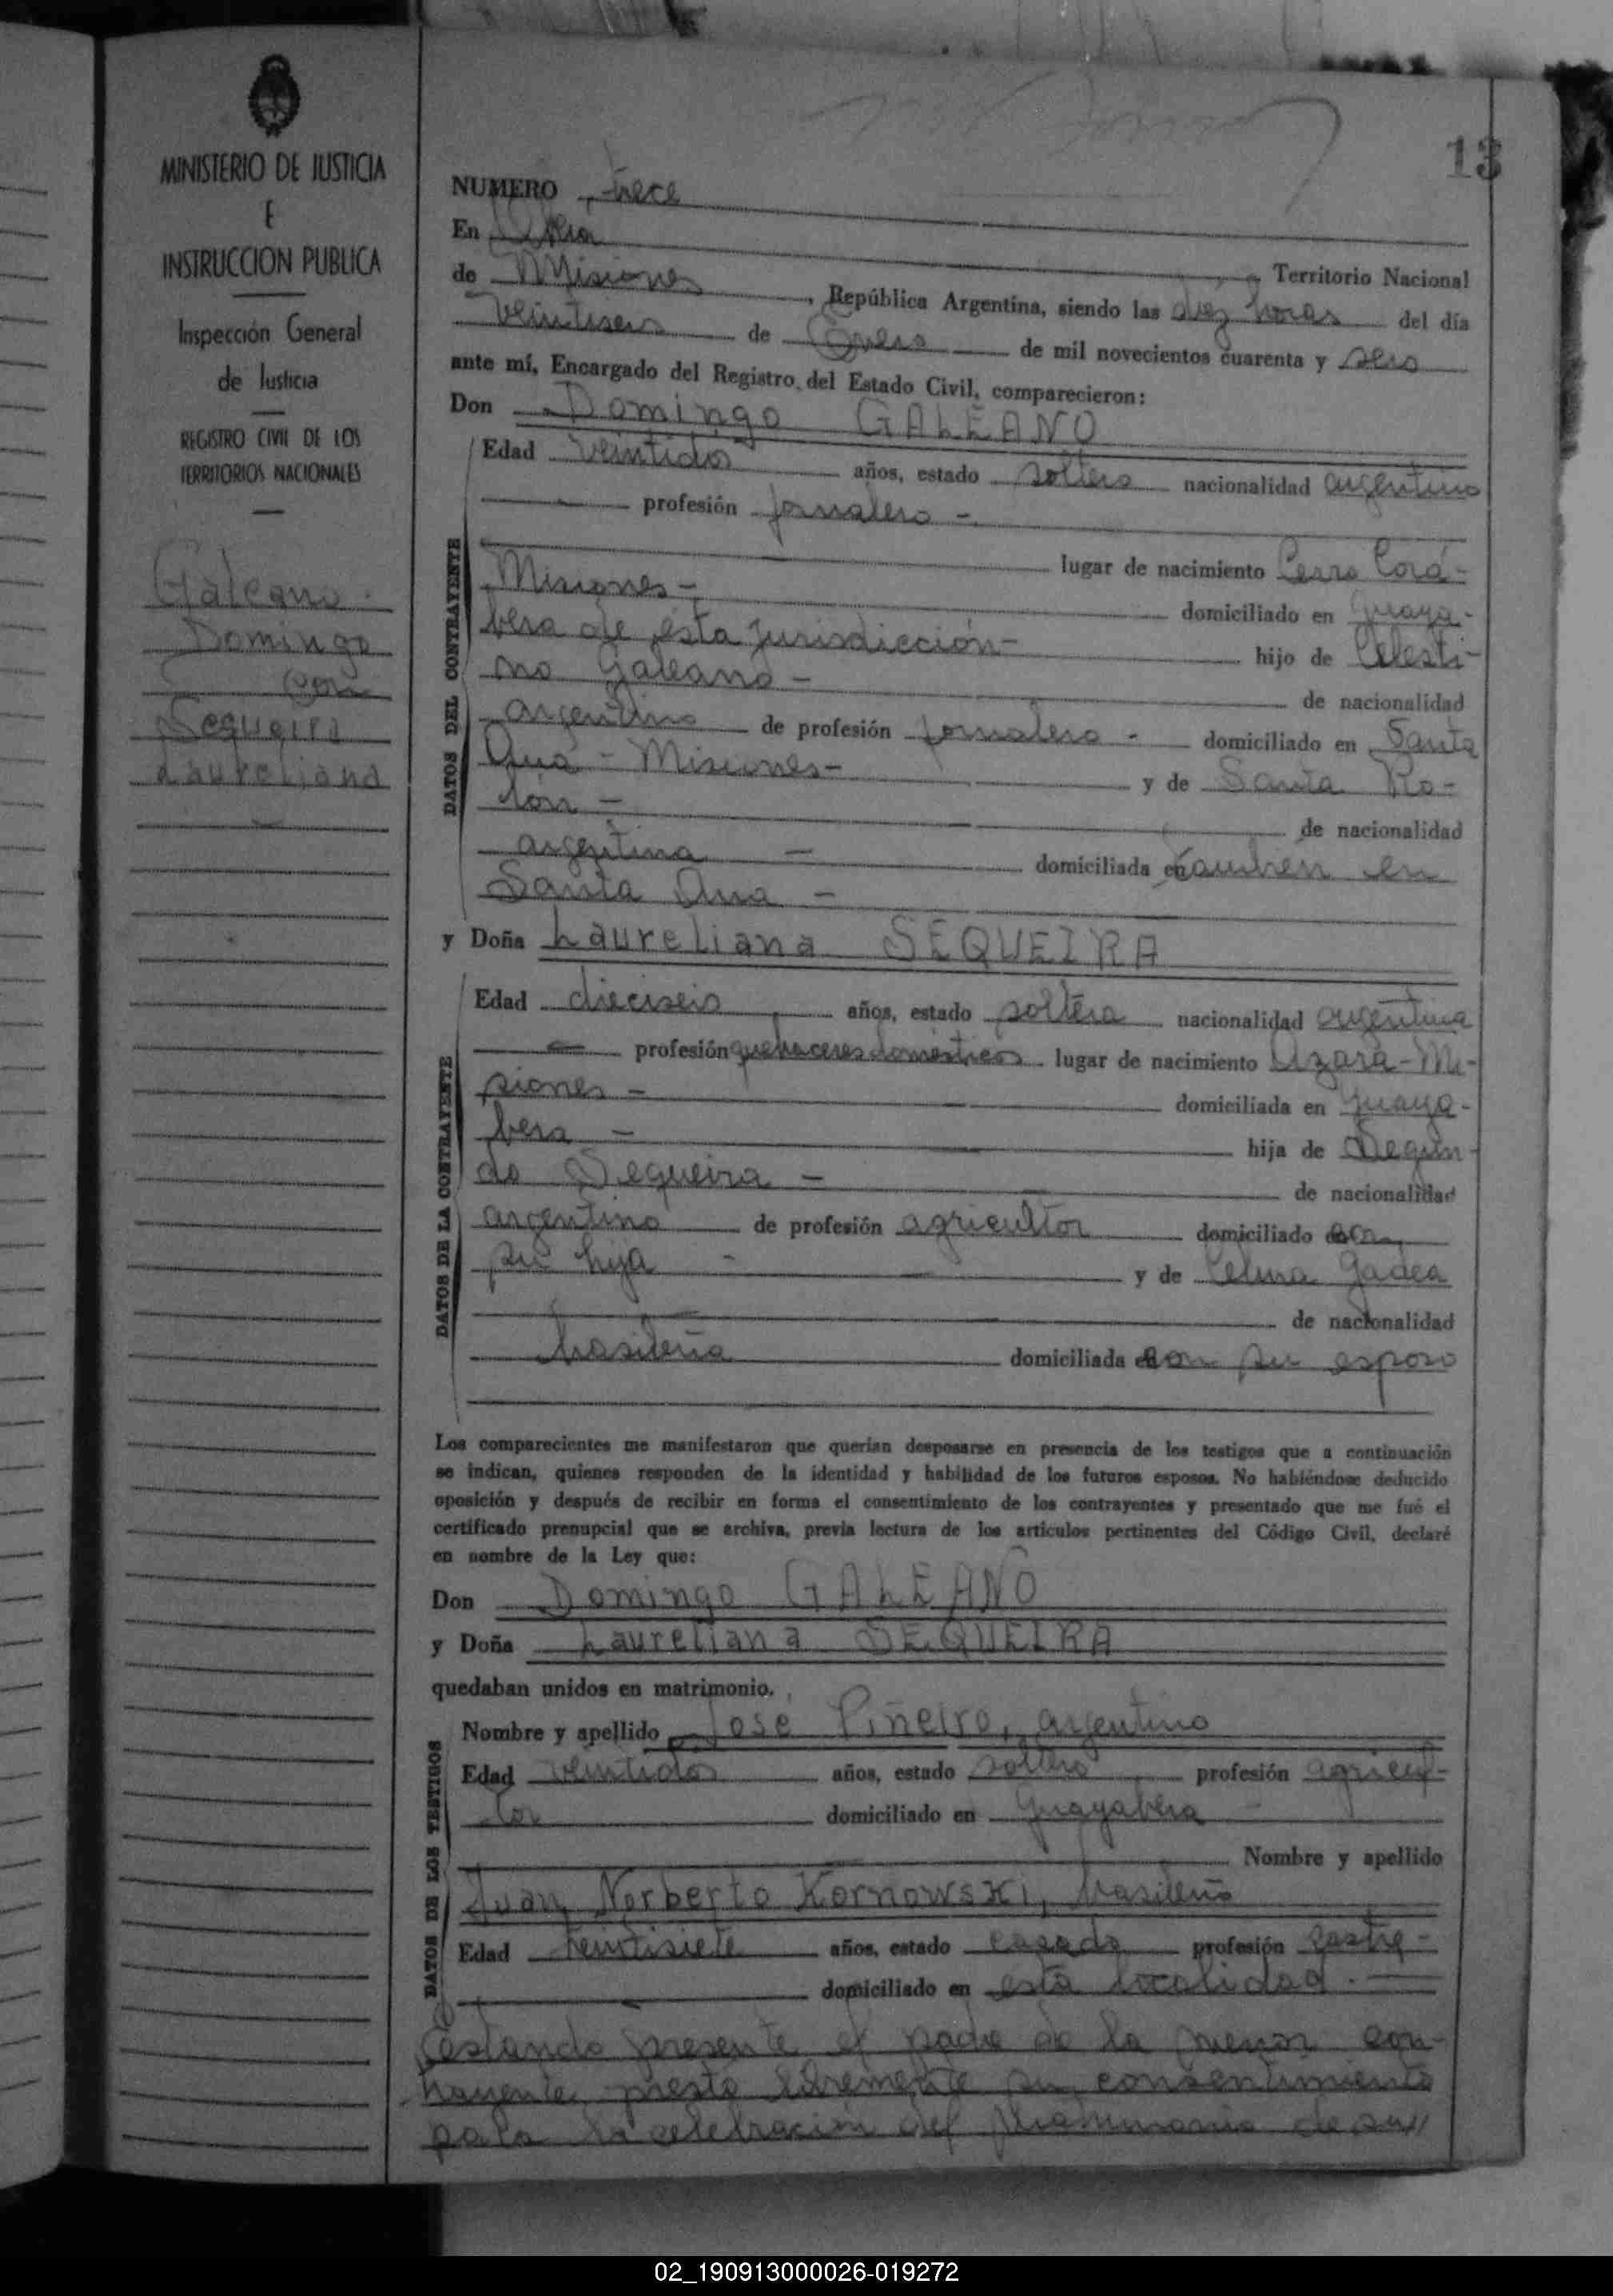 13
MINISTERIO DE JUSTICIA
E
INSTRUCCION PUBLICA
Inspección General
de Justicia
REGISTRO CIVIL DE LOS
TERRITORIOS NACIONALES
Galeano
Domingo
con
Sequeira
Laureliana
NUMERO trece
En
Territorio Nacional
de Misiones, República Argentina, siendo las diez horas del día
veintiseis de Enero de mil novecientos cuarenta y seis
ante mí, Encargado del Registro del Estado Civil, comparecieron:
Don Domingo GALEANO
DATOS DEL CONTRAYENTE
Edad veintidos años, estado soltero nacionalidad argentino
profesión jornalero -
lugar de nacimiento Cerro Corá -
Misiones - domiciliado en Guaya-
bera de esta jurisdicción - hijo de Celesti-
no Galeano - de nacionalidad
argentino de profesión jornalero - domiciliado en Santa
Ana - Misiones - y de Santa Ro-
lón - de nacionalidad
argentina - domiciliada en también en
Santa Ana -
y Doña Laureliana SEQUEIRA
DATOS DE LA CONTRAYENTE
Edad dieciseis años, estado soltera nacionalidad argentina
profesión quehaceres domésticos lugar de nacimiento Azara - Mi-
siones - domiciliada en Guaya-
bera - hija de Segun-
do Sequeira - de nacionalidad
argentino de profesión agricultor domiciliado con
su hija - y de Celina Gadea
de nacionalidad
brasileña domiciliada con su esposo
Los comparecientes me manifestaron que querían desposarse en presencia de los testigos que a continuación
se indican, quienes responden de la identidad y habilidad de los futuros esposos. No habiéndose deducido
oposición y después de recibir en forma el consentimiento de los contrayentes y presentado que me fué el
certificado prenupcial que se archiva, previa lectura de los artículos pertinentes del Código Civil, declaré
en nombre de la Ley que:
Don Domingo GALEANO
y Doña Laureliana SEQUEIRA
quedaban unidos en matrimonio.
DATOS DE LOS TESTIGOS
Nombre y apellido Jose Piñeiro, argentino
Edad veintidos años, estado soltero profesión agricul-
tor domiciliado en Guayabera -
Nombre y apellido
Juan Norberto Kornowski, brasileño
Edad veintisiete años, estado casado profesión sastre -
domiciliado en esta localidad. -
Estando presente el padre de la menor con-
trayente presta libremente su consentimiento
para la celebración del matrimonio de su//
02_190913000026-019272